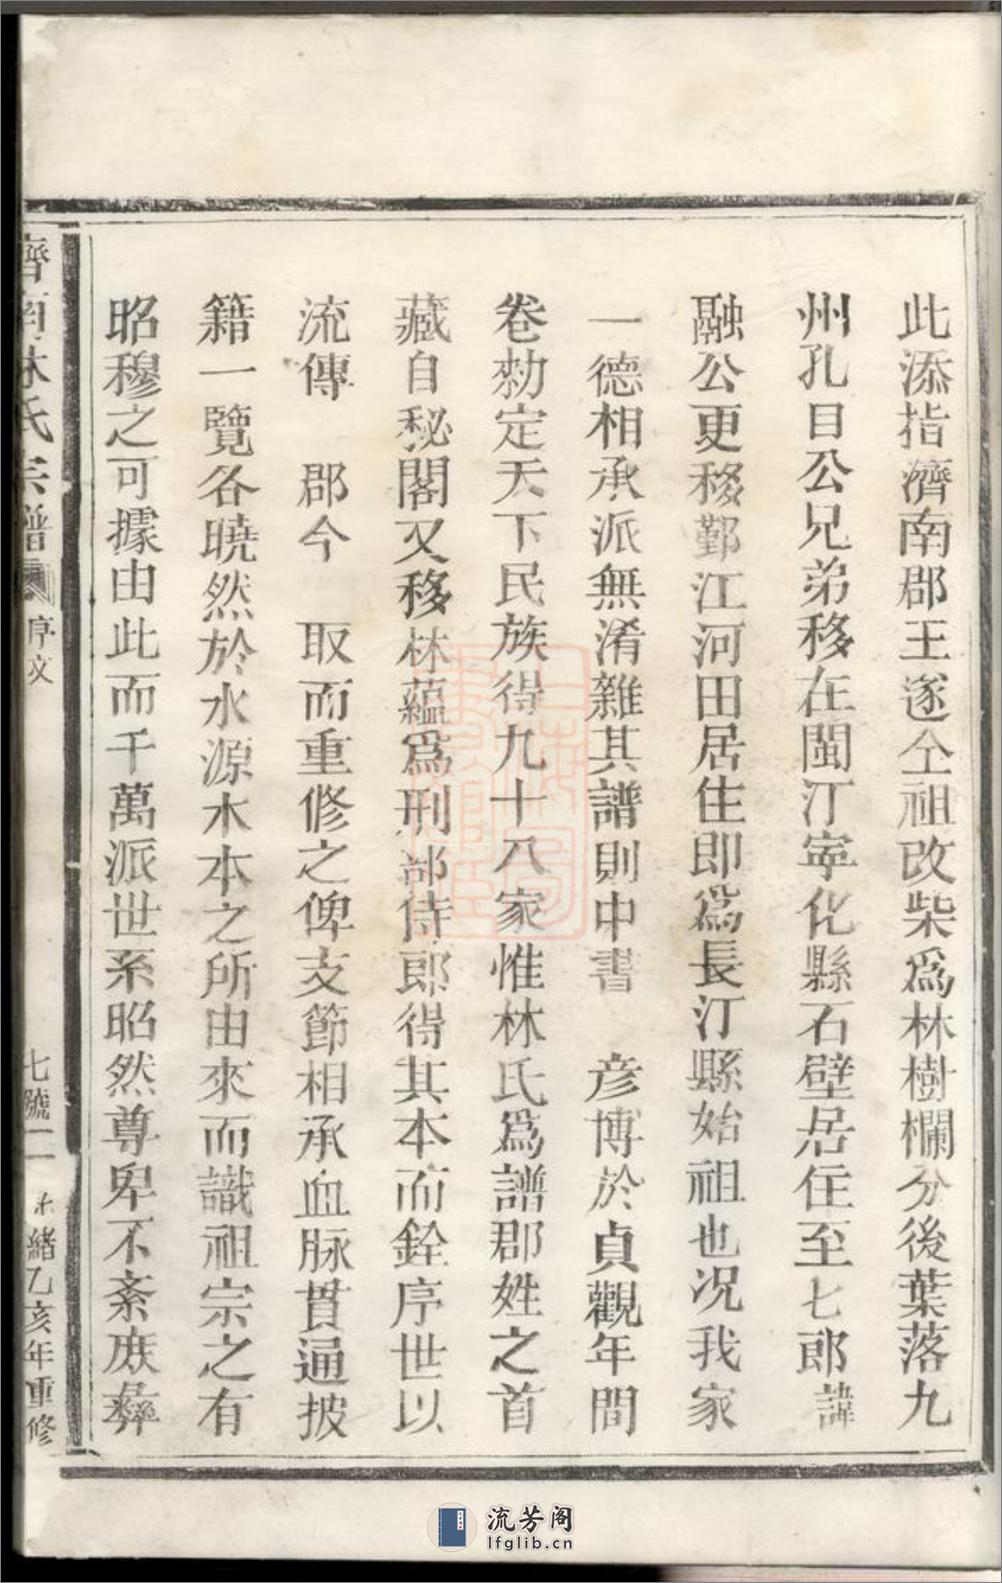 此添指濟南郡王遂仝祖改柴爲林樹欄分後葉落九
州孔目公兄弟移在閩汀寧化縣石壁居住至七郎諱
融公更移鄞江河田居住即爲長汀縣始祖也况我家
一德相承派無淆雜其譜則中書　彥博於貞觀年間
卷勑定天下民族得九十八家惟林氏爲譜郡姓之首
藏自秘閣又移林蘊爲刑部侍郎得其本而銓序世以
流傳　郡今　取而重修之俾支節相承血脉貫通披
籍一覽各曉然於水源木本之所由來而識祖宗之有
昭穆之可據由此而千萬派世系昭然尊卑不紊庶彝
濟南林氏宗譜
序文
七號二
緒乙亥年重修
流芳阁
lfglib.cn